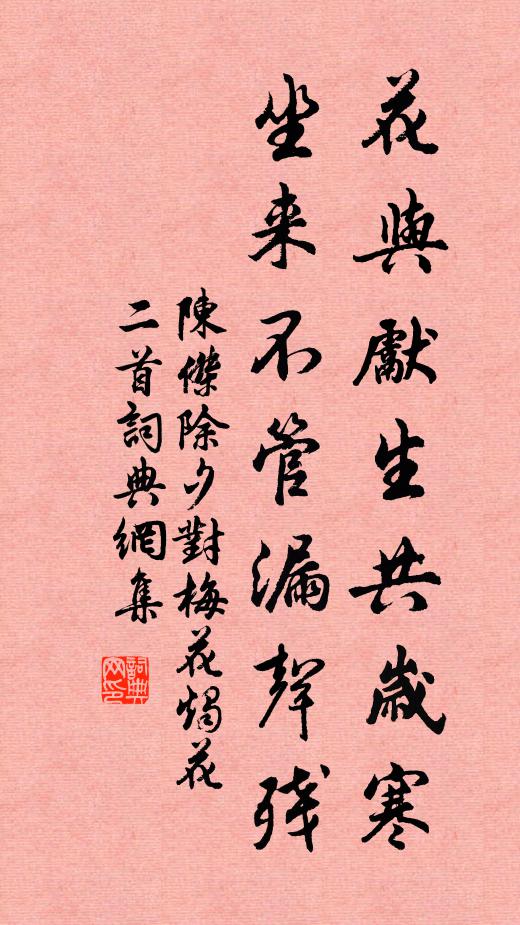 花與獻生共歲寒
坐来不管漏聲殘
陳傑除夕對梅花燭花
二首詞典網集
詞典网印